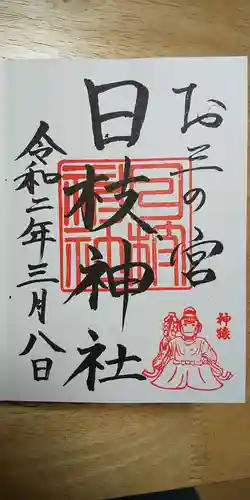 お三の宮
日枝神社
令和二年三月八日
神猿